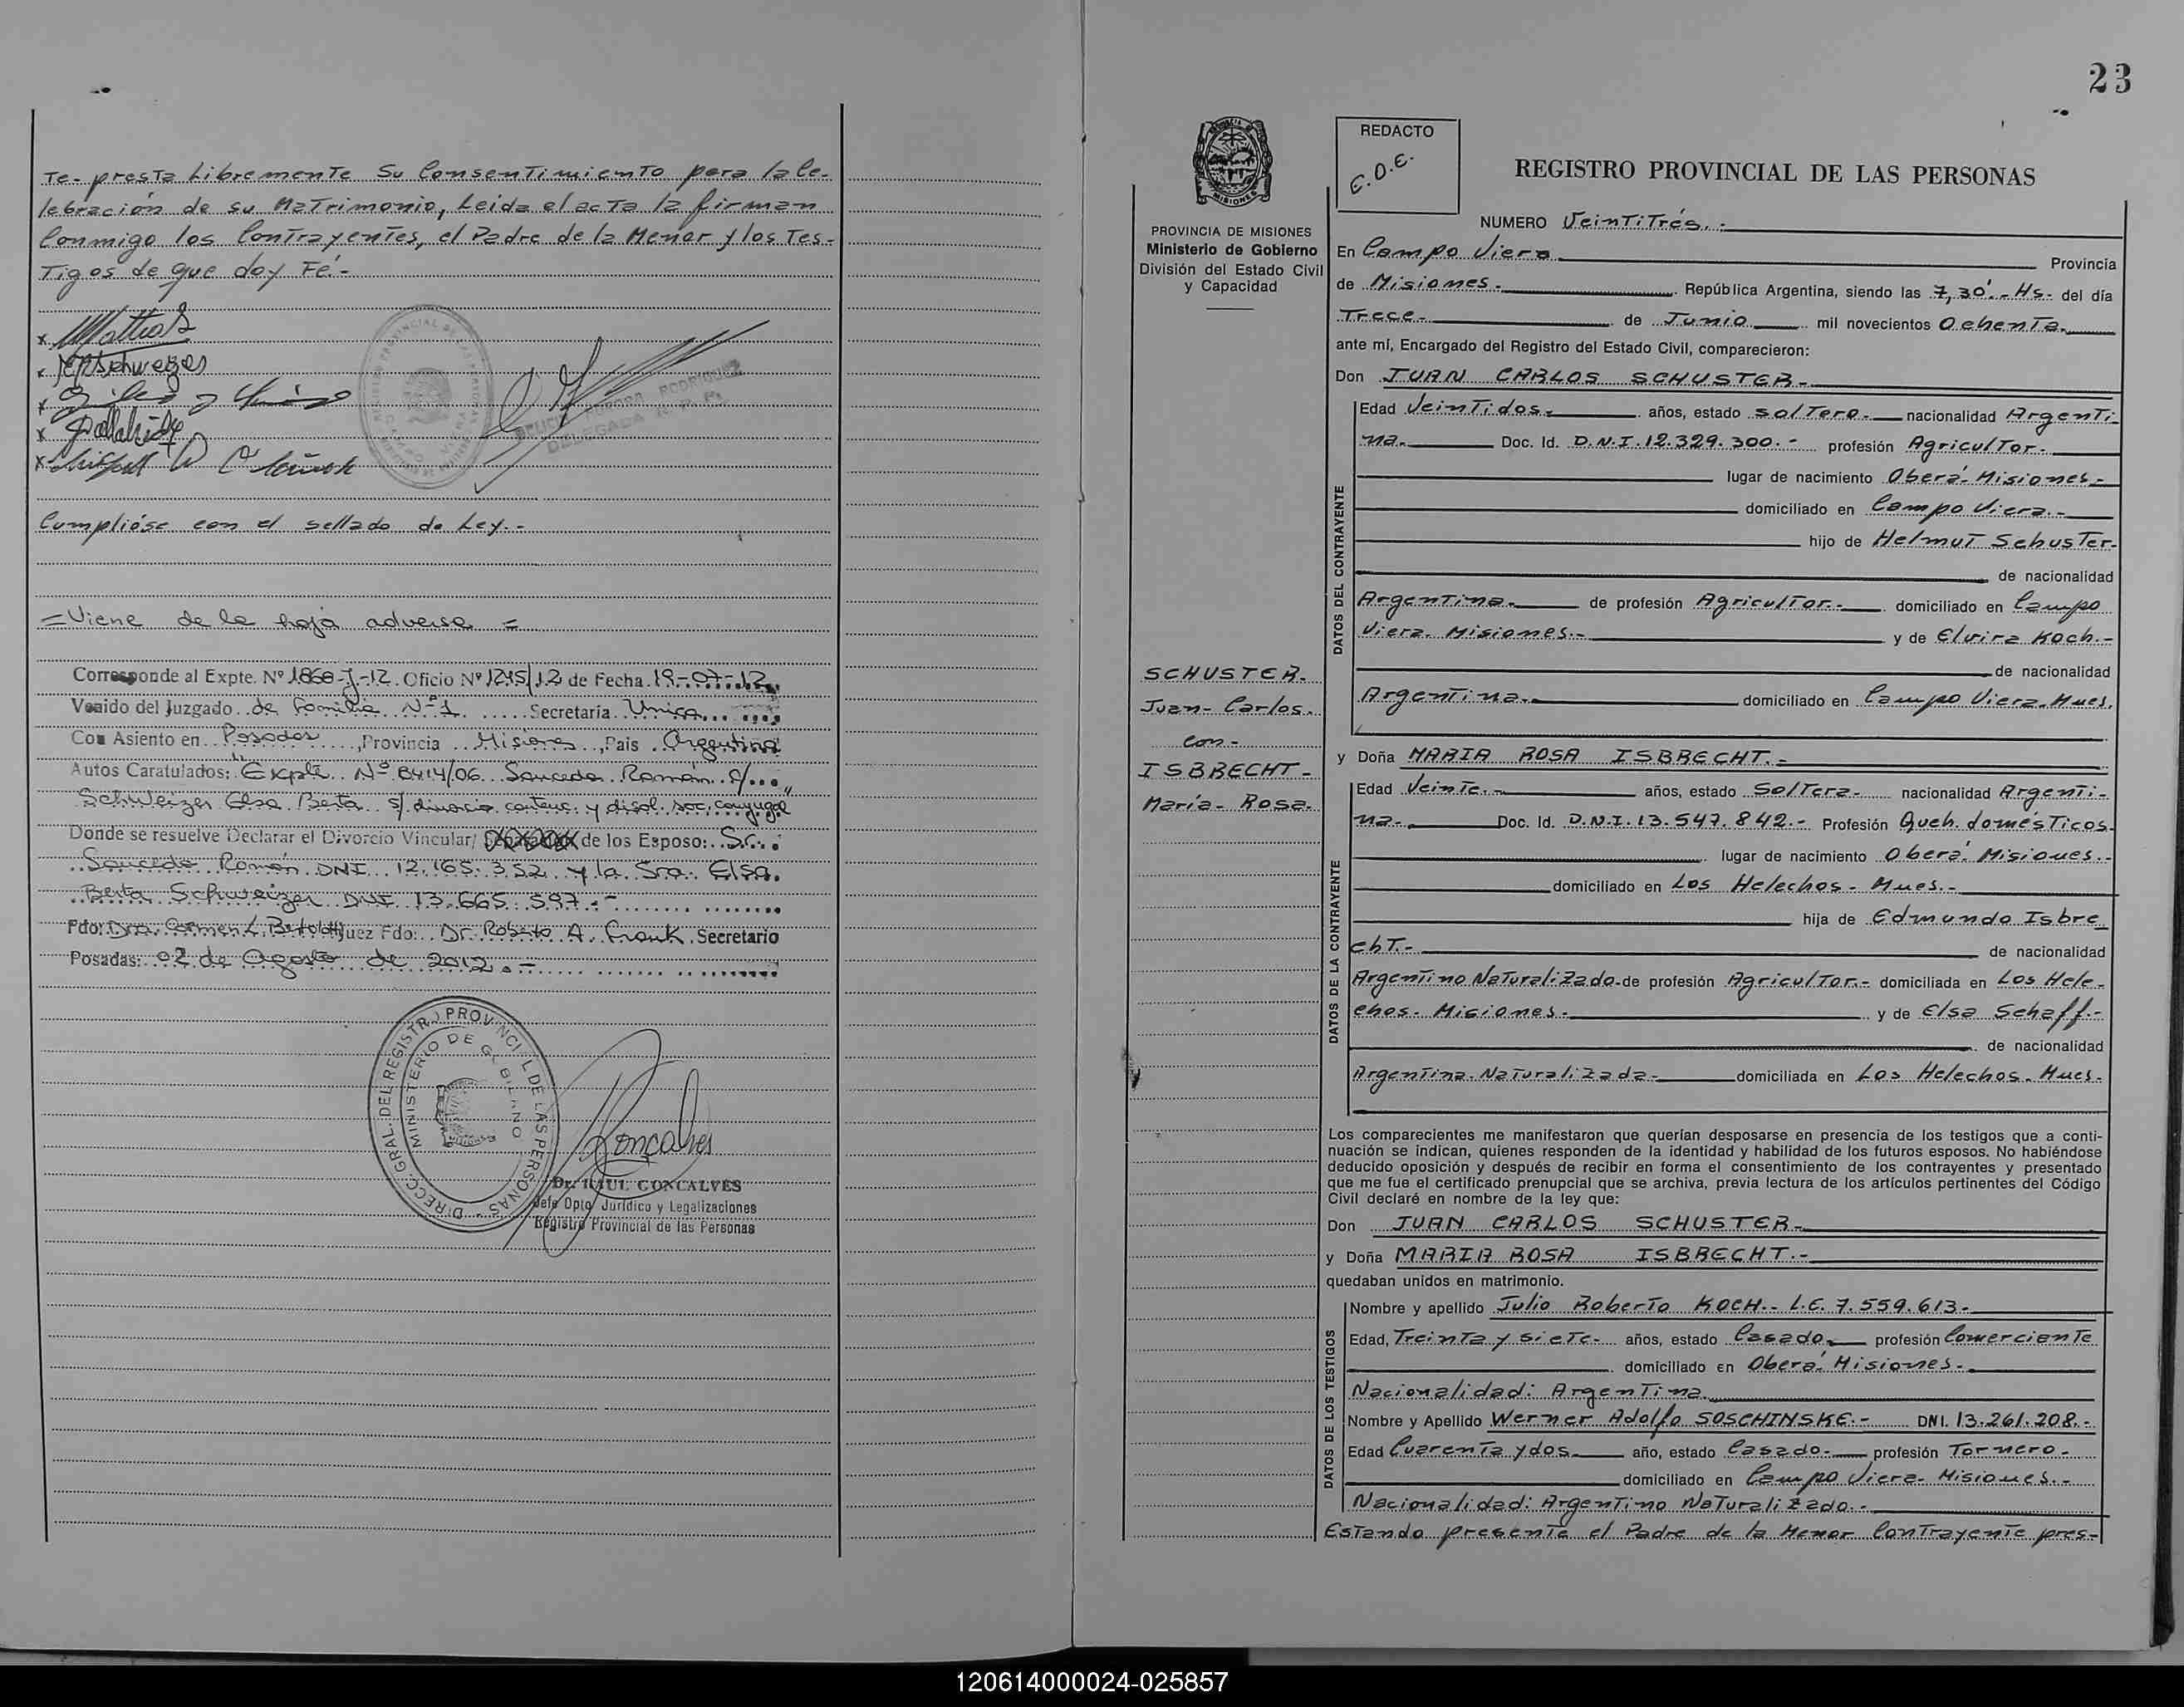 te- presta Libremente Su Consentimiento para la Ce-
lebración de su Matrimonio, Leida el acta la firman
Conmigo los Contrayentes, el Padre de la Menor y los Tes-
tigos de que doy Fé.-
Cumplióse con el sellado de Ley.-
= Viene de la hoja adversa =
Corresponde al Expte. Nº 1868-J-12. Oficio Nº 1215/12 de Fecha 19-07-12
Venido del Juzgado de Familia Nº 1 Secretaría Unica
Con Asiento en Posadas, Provincia Misiones, Pais Argentina
Autos Caratulados: "Expte. Nº 8414/06 Saucedo Román c/
Schweizer Elsa Berta s/ divorcio contenc. y disol. soc. conyugal"
Donde se resuelve Declarar el Divorcio Vincular/ de los Esposo: Sr.
Saucedo Román DNI 12.165.352 y la Sra. Elsa
Berta Schweizer DNI 13.665.597.-
Fdo: Dra. Carmen L. Juez Fdo: Dr. Roberto A. Frank Secretario
Posadas: 02 de Agosto de 2012.-
DIRECC. GRAL. DEL REGISTRO PROVINCIAL DE LAS PERSONAS
MINISTERIO DE GOBIERNO
Goncalves
Dr. RAUL GONCALVES
Jefe Dpto Jurídico y Legalizaciones
Registro Provincial de las Personas
23
MISIONES
PROVINCIA DE MISIONES
Ministerio de Gobierno
División del Estado Civil
y Capacidad
REDACTO
E.O.E.
REGISTRO PROVINCIAL DE LAS PERSONAS
NUMERO Veintitrés.-
En Campo Viera Provincia
de Misiones.- República Argentina, siendo las 7,30'.-Hs- del día
Trece- de Junio mil novecientos Ochenta.
ante mí, Encargado del Registro del Estado Civil, comparecieron:
Don JUAN CARLOS SCHUSTER-
DATOS DEL CONTRAYENTE
Edad Veintidos- años, estado soltero- nacionalidad Argenti-
na.- Doc. Id. D.N.I.12.329.300.- profesión Agricultor-
lugar de nacimiento Oberá- Misiones-
domiciliado en Campo Viera.-
hijo de Helmut Schuster-
de nacionalidad
Argentina- de profesión Agricultor- domiciliado en Campo
Viera. Misiones.- y de Elvira Koch.-
de nacionalidad
Argentina- domiciliado en Campo Viera-Mnes.
SCHUSTER-
Juan- Carlos.
con-
ISBRECHT-
María- Rosa-
y Doña MARIA ROSA ISBRECHT.-
DATOS DE LA CONTRAYENTE
Edad Veinte.- años, estado Soltera- nacionalidad Argenti-
na- Doc. Id. D.N.I.13.547.842.- Profesión Queh. domésticos-
lugar de nacimiento Oberá. Misiones.-
domiciliado en Los Helechos- Mnes.-
hija de Edmundo Isbre
cht.- de nacionalidad
Argentino Naturalizado- de profesión Agricultor.- domiciliada en Los Hele-
chos- Misiones- y de Elsa Schaff.-
de nacionalidad
Argentina-Naturalizada- domiciliada en Los Helechos-Mnes-
Los comparecientes me manifestaron que querían desposarse en presencia de los testigos que a conti-
nuación se indican, quienes responden de la identidad y habilidad de los futuros esposos. No habiéndose
deducido oposición y después de recibir en forma el consentimiento de los contrayentes y presentado
que me fue el certificado prenupcial que se archiva, previa lectura de los artículos pertinentes del Código
Civil declaré en nombre de la ley que:
Don JUAN CARLOS SCHUSTER-
y Doña MARIA ROSA ISBRECHT.-
quedaban unidos en matrimonio.
DATOS DE LOS TESTIGOS
Nombre y apellido Julio Roberto KOCH.- L.E. 7.559.613-
Edad, Treinta y siete- años, estado Casado- profesión Comerciante
domiciliado en Oberá. Misiones-
Nacionalidad: Argentina
Nombre y Apellido Werner Adolfo SOSCHINSKE.- DNI. 13.261.208.-
Edad Cuarenta y dos- año, estado Casado- profesión Tornero-
domiciliado en Campo Viera- Misiones.-
Nacionalidad: Argentino Naturalizado.-
Estando presente el Padre de la Menor Contrayente pres-
120614000024-025857